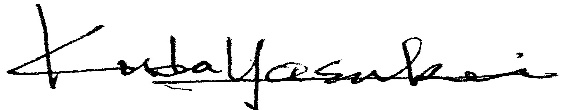 Kuba Yasukei